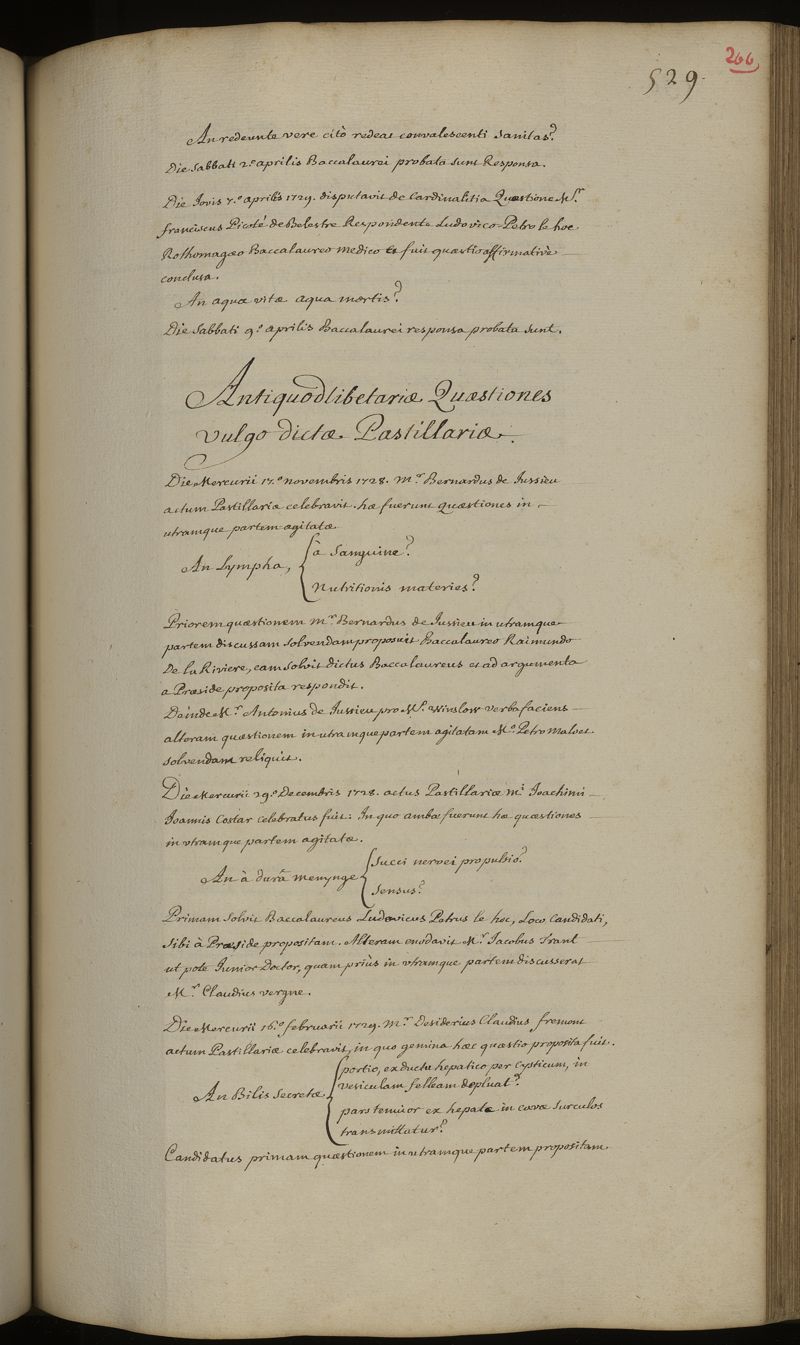 266
529.
An redeunte vere citò redeat convalescenti sanitas?
Die Sabbati 2.º aprilis Baccalaurei probata sunt Responsa.
Die Jovis 7.º aprilis 1729. disputavit de Cardinalitia Quæstione M.r
franciscus Picoté de Belestre Respondente Ludovico-Petro le hoc
Rothomagæo Baccalaureo medico et fuit quæstio affirmativè
conclusa.
An aqua vitæ aqua mortis?
Die Sabbati 9.º aprilis Baccalaurei responsa probata sunt.
Antiquodlibetariæ Quæstiones
vulgo dictæ Pastillariæ.
Die Mercurii 17.º novembris 1728. M.r Bernardus de Jussieu
actum Pastillariæ celebravit. hæ fuerunt quæstiones in
utramque partem agitatæ
An Lympha, { à Sanguine?
Nutritionis materies?
Priorem quæstionem M.r Bernardus de Jussieu in utramque
partem discussam solvendam proposuit Baccalaureo Raimundo
De la Riviere, eam solvit dictus Baccalaureus et ad argumenta
a Præside proposita respondit.
Deinde M.r Antonius de Jussieu pro M.º Winslow verba faciens
alteram quæstionem in utramque partem agitatam M.º Petro Maloet
solvendam reliquit.
Die Mercurii 29.º Decembris 1728. actus Pastillariæ M.i Joachimi
Joannis Costar celebratus fuit: In quo ambæ fuerunt hæ quæstiones
in vtramque partem agitatæ.
An à durâ menynge { Succi nervei propulsio?
Sensus?
Primam solvit Baccalaureus Ludovicus Petrus le hoc, Loco Candidati,
sibi à Præside propositam. Alteram enodavit M.r Jacobus Trant
ut pote Junior Doctor, quam priùs in vtramque partem discusserat
M.r Claudius vergne.
Die Mercurii 16.º februarii 1729. M.r Desiderius Claudius fremont
actum Pastillariæ celebravit, in quo gemina hæc quæstio proposita fuit.
An Bilis Secretæ { portio, ex ductu hepatico per Cysticum, in
vesiculam felleam depluat?
pars tenuior ex hepate in cavæ surculos
transmittatur?
Candidatus primam quæstionem in utramque partem propositam